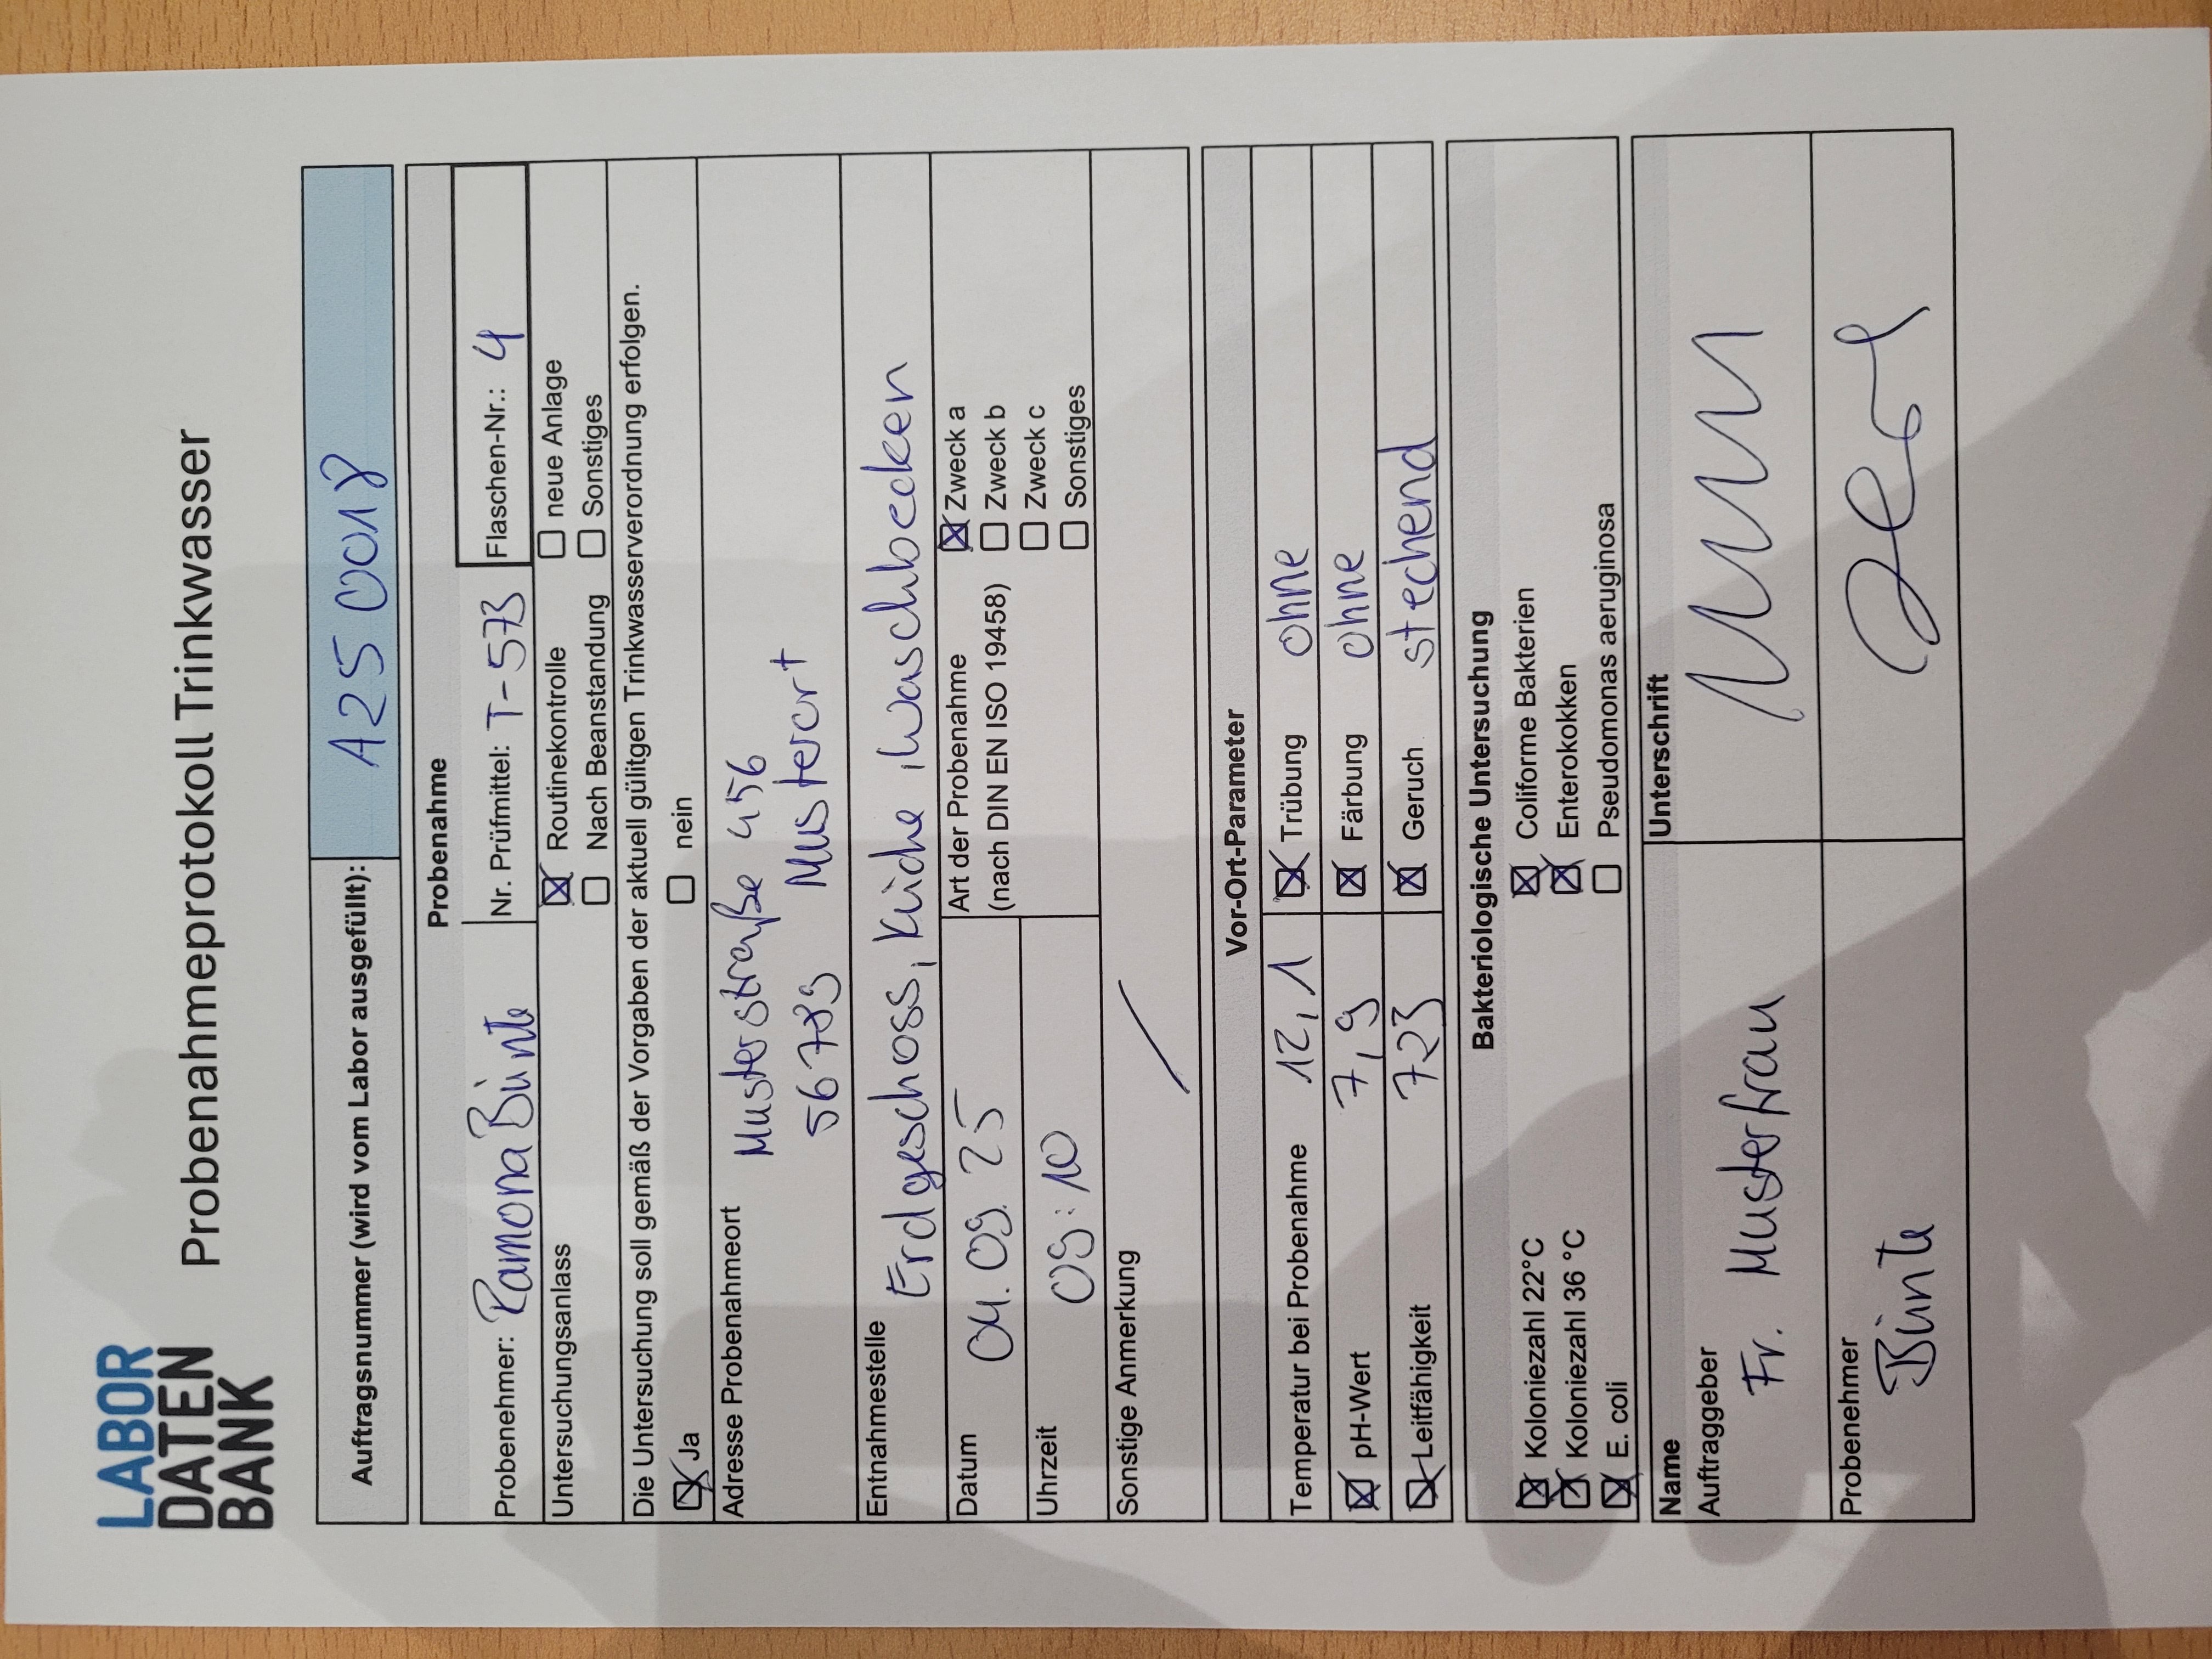 LABOR
DATEN
BANK
Probenahmeprotokoll Trinkwasser
Auftragsnummer (wird vom Labor ausgefüllt): A25 0018
Probenahme
Probenehmer: Ramona Bünte Nr. Prüfmittel: T-573 Flaschen-Nr.: 4
Untersuchungsanlass ☒ Routinekontrolle ☐ neue Anlage
☐ Nach Beanstandung ☐ Sonstiges
Die Untersuchung soll gemäß der Vorgaben der aktuell gülitgen Trinkwasserverordnung erfolgen.
☒ Ja ☐ nein
Adresse Probenahmeort Musterstraße 456
56789 Musterort
Entnahmestelle Erdgeschoss, Küche, Waschbecken
Datum 04.09.25 Art der Probenahme ☒ Zweck a
(nach DIN EN ISO 19458) ☐ Zweck b
Uhrzeit 09:10 ☐ Zweck c
☐ Sonstiges
Sonstige Anmerkung
Vor-Ort-Parameter
Temperatur bei Probenahme 12,1 ☒ Trübung ohne
☒ pH-Wert 7,9 ☒ Färbung ohne
☒ Leitfähigkeit 723 ☒ Geruch stechend
Bakteriologische Untersuchung
☒ Koloniezahl 22°C ☒ Coliforme Bakterien
☒ Koloniezahl 36 °C ☒ Enterokokken
☒ E. coli ☐ Pseudomonas aeruginosa
Name Unterschrift
Auftraggeber
Fr. Musterfrau
Probenehmer
Bünte